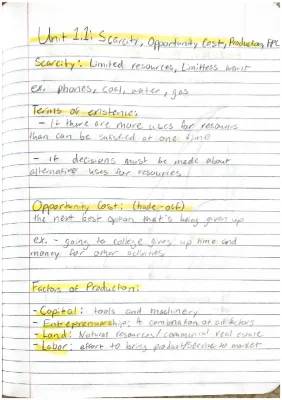 Unit 1.1: Scarcity, Opportunity Cost, Production, PPC
Scarcity: Limited resources, Limitless want
ex. phones, coal, water, gas
Terms of existence:
- If there are more uses for resources
than can be satisfied at one time
- if decisions must be made about
alternative uses for resources
Opportunity Cost: (trade-off)
the next best option that's being given up
ex. - going to college gives up time and
money for other activities
Factors of Production:
- Capital: tools and machinery
- Entrepreneurship: combination of all factors
- Land: Natural resources/commercial real estate
- Labor: effort to bring product/service to market